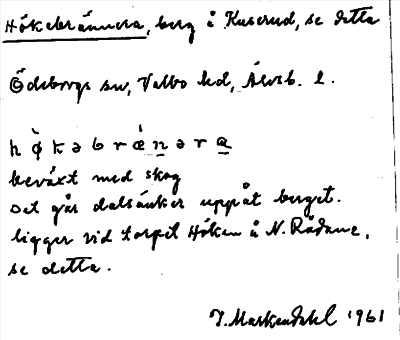 Hökebrännera, berg å Kuserud, se detta
Ödeborgs sn, Valbo hd, Älvsb. l.
hø̀kəbrǽnəra
beväxt med skog
Det går dalsänker uppåt berget.
ligger vid torpet Höken å N. Rådane,
se detta.
J. Markendahl 1961